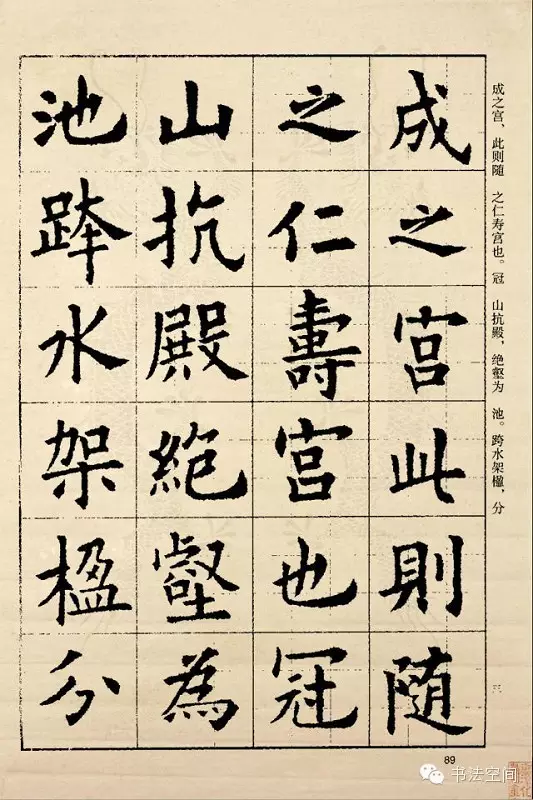 成之宫此則随
之仁壽宫也冠
山抗殿絶壑為
池跨水架楹分
成之宫，此则随 之仁寿宫也。冠 山抗殿，绝壑为 池。跨水架楹，分
三
89
书法空间